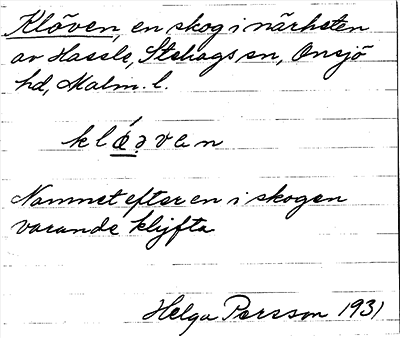 Klöven, en skog i närheten
av Hassle, Stehags sn, Onsjö
hd, Malm. l.
Nammet efter en i skogen
varande klyfta
Helga Persson 1931